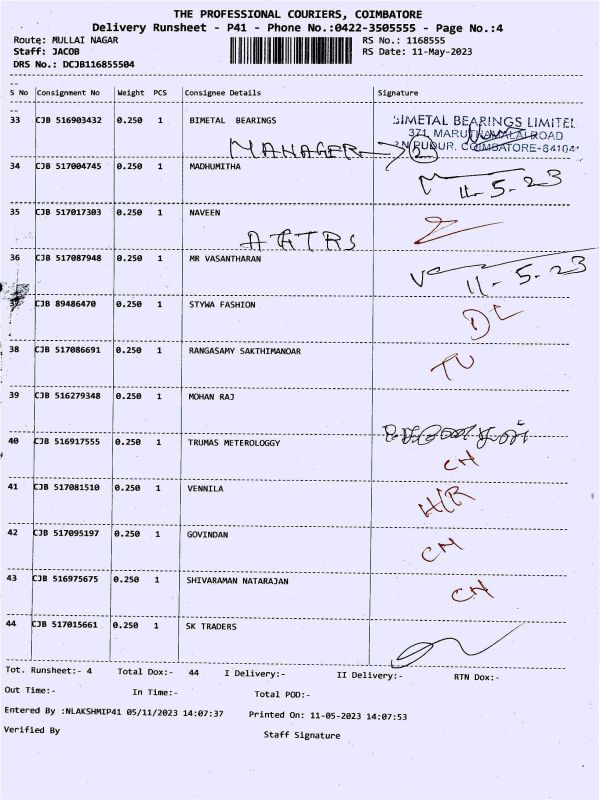 THE PROFESSIONAL COURIERS, COIMBATORE
Delivery Runsheet - P41 - Phone No.:0422-3505555 - Page No.:4
Route: MULLAI NAGAR RS No.: 1168555
Staff: JACOB RS Date: 11-May-2023
DRS No.: DCJB116855504
S No Consignment No Weight PCS Consignee Details Signature
33 CJB 516903432 0.250 1 BIMETAL BEARINGS
BIMETAL BEARINGS LIMITED
371, MARUTHAMALAI ROAD
P.N.PUDUR, COIMBATORE-641041
MANAGER 2
34 CJB 517004745 0.250 1 MADHUMITHA
11-5-23
35 CJB 517017303 0.250 1 NAVEEN
36 CJB 517087948 0.250 1 MR VASANTHARAN
11-5-23
37 CJB 89486470 0.250 1 STYWA FASHION
DL
38 CJB 517086691 0.250 1 RANGASAMY SAKTHIMANOAR
39 CJB 516279348 0.250 1 MOHAN RAJ
40 CJB 516917555 0.250 1 TRUMAS METEROLOGGY
CN
41 CJB 517081510 0.250 1 VENNILA
42 CJB 517095197 0.250 1 GOVINDAN
CN
43 CJB 516975675 0.250 1 SHIVARAMAN NATARAJAN
CN
44 CJB 517015661 0.250 1 SK TRADERS
Tot. Runsheet:- 4 Total Dox:- 44 I Delivery:- II Delivery:- RTN Dox:-
Out Time:- In Time:- Total POD:-
Entered By :NLAKSHMIP41 05/11/2023 14:07:37 Printed On: 11-05-2023 14:07:53
Verified By Staff Signature